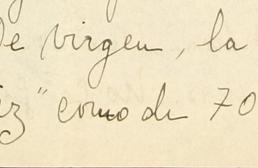 de virgen, la
iz" como de 70